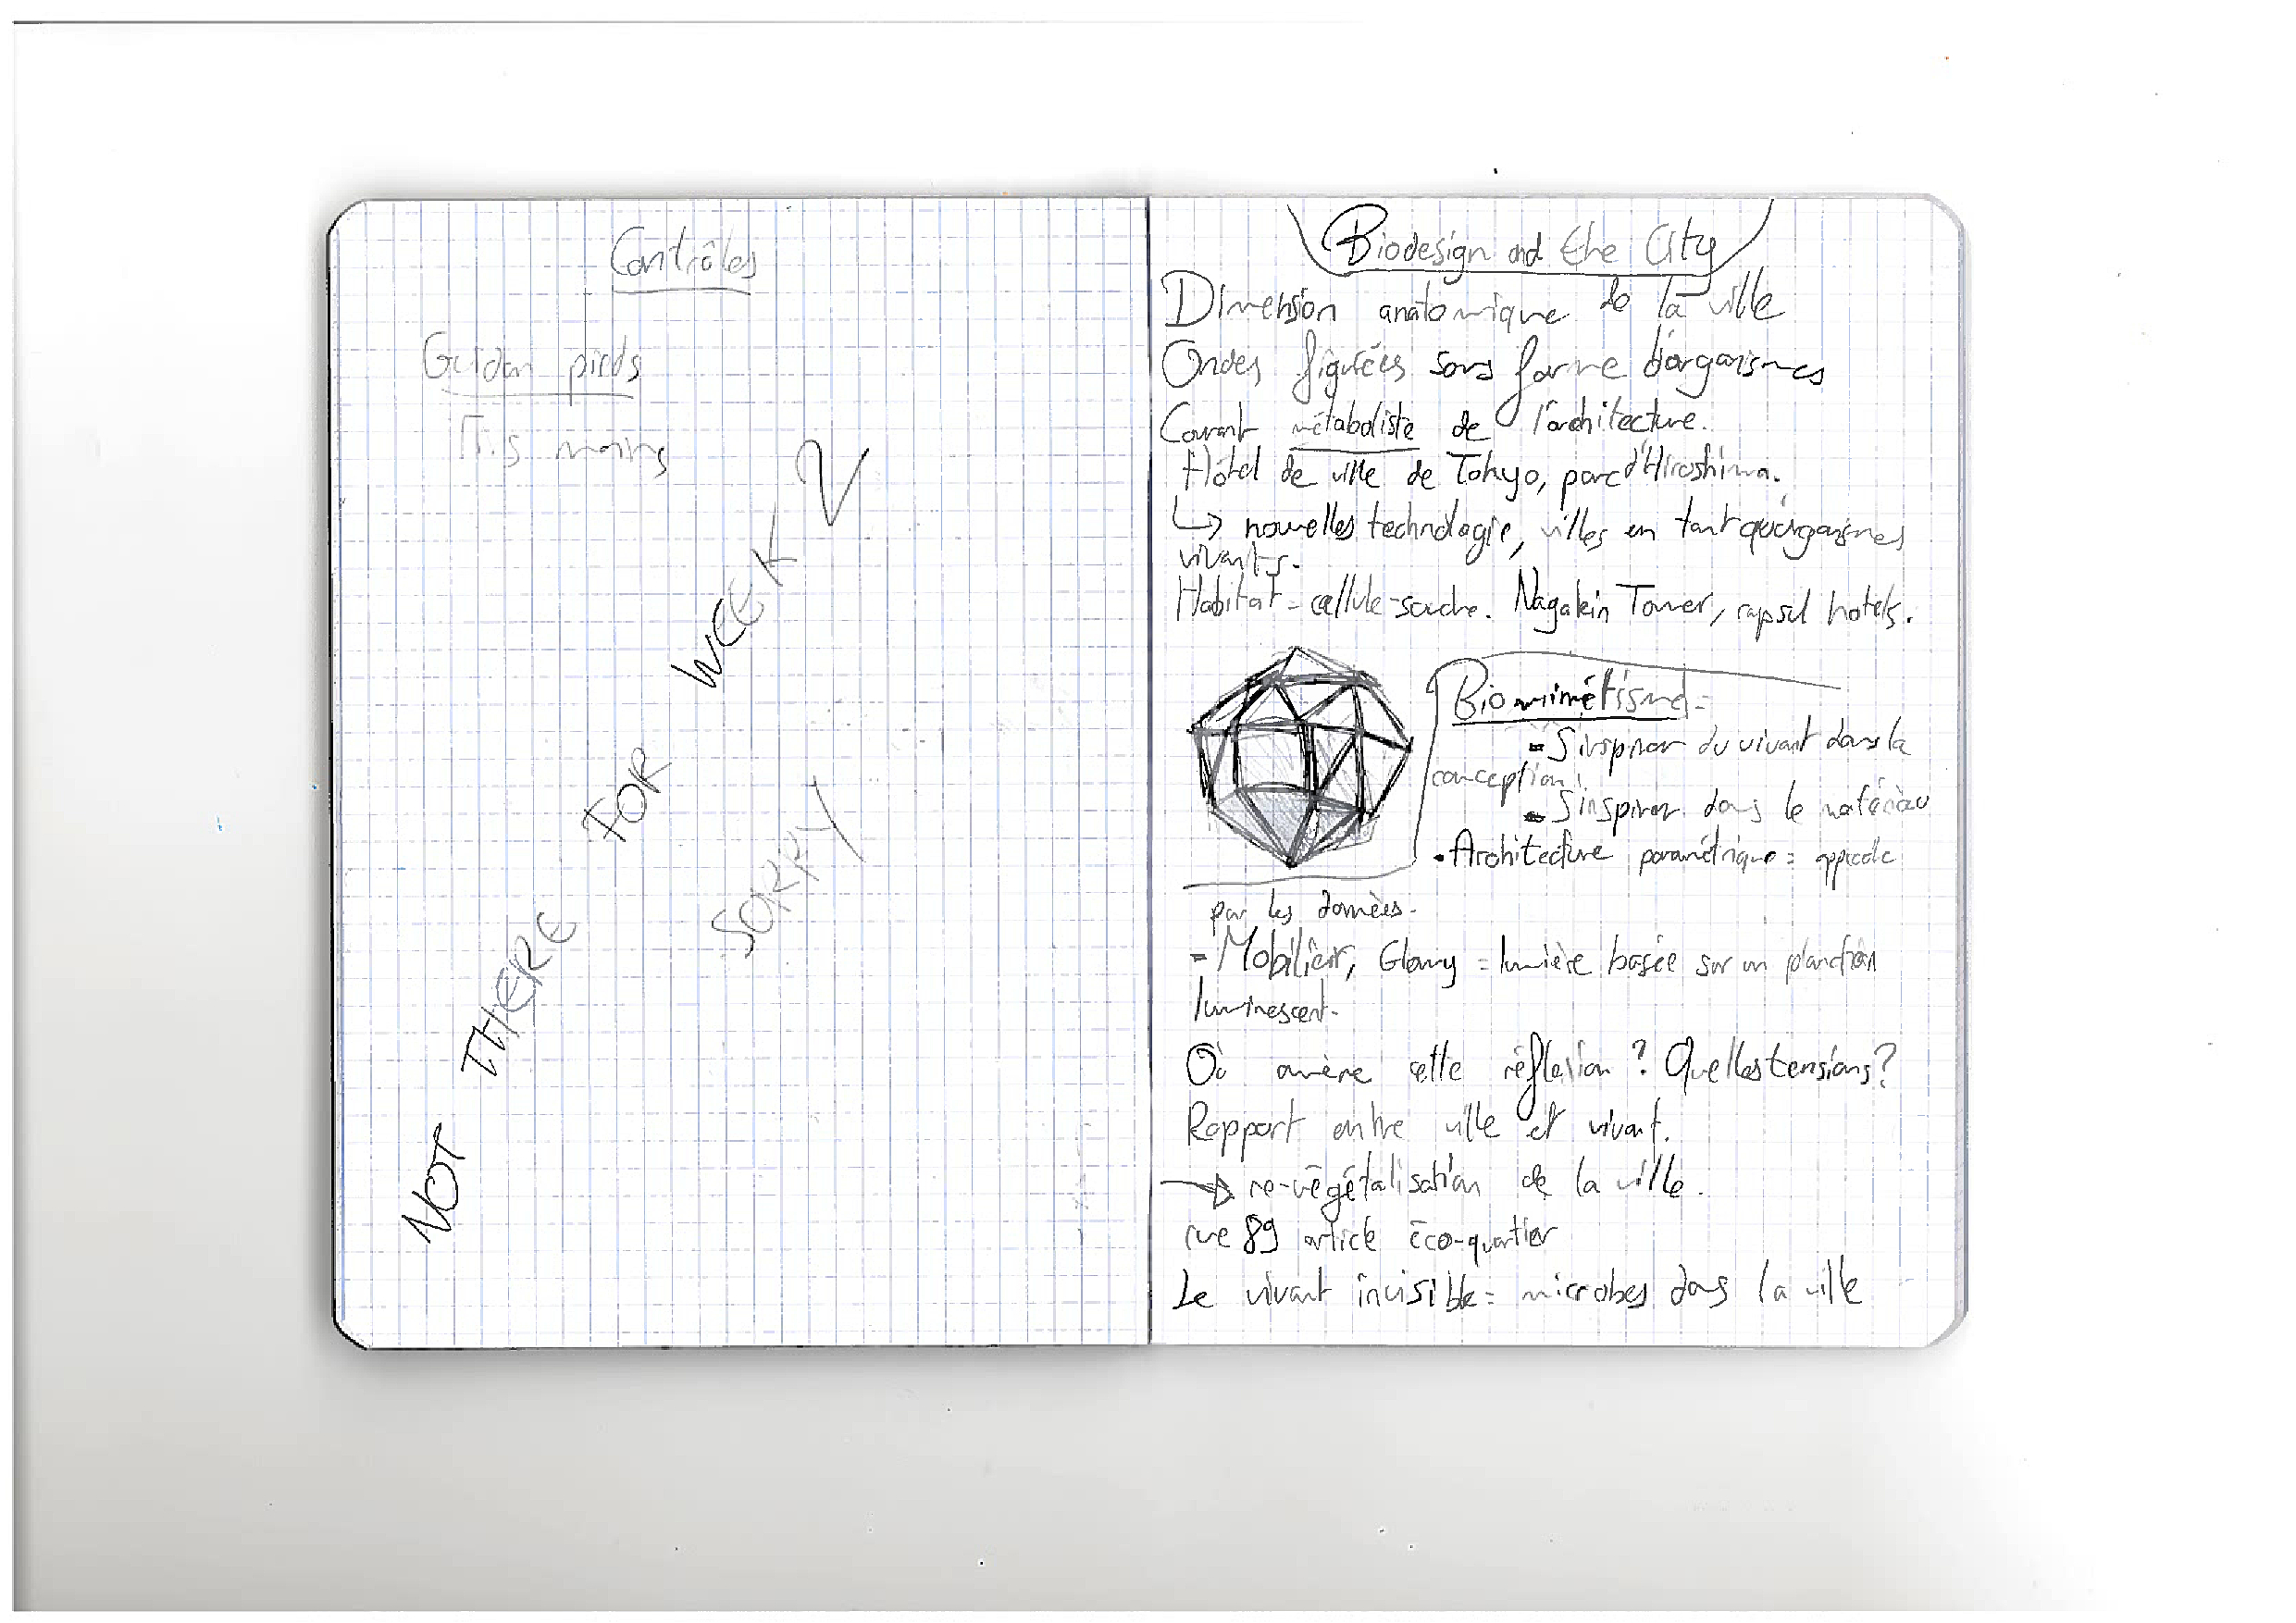 Contrôles
Guidon pieds
mains
NOT THERE FOR WEEK 2
SORRY
Biodesign and the City
Dimension anatomique de la ville
Ondes figurées sous forme d'organismes
Courant métaboliste de l'architecture.
Hôtel de ville de Tokyo, parc d'Hiroshima.
↳ nouvelles technologie, villes en tant qu'organismes
vivants.
Habitat = cellule-souche. Nagakin Tower, capsul hotels.
Biomimétisme =
- S'inspirer du vivant dans la
conception.
- S'inspirer dans le matériau
• Architecture paramétrique =
par les données.
- Mobilier, Glowy = lumière basée sur un plancton
luminescent.
Où amène cette réflexion ? Quelles tensions ?
Rapport entre ville et vivant.
→ re-végétalisation de la ville.
rue 89 article éco-quartier
Le vivant invisible = microbes dans la ville